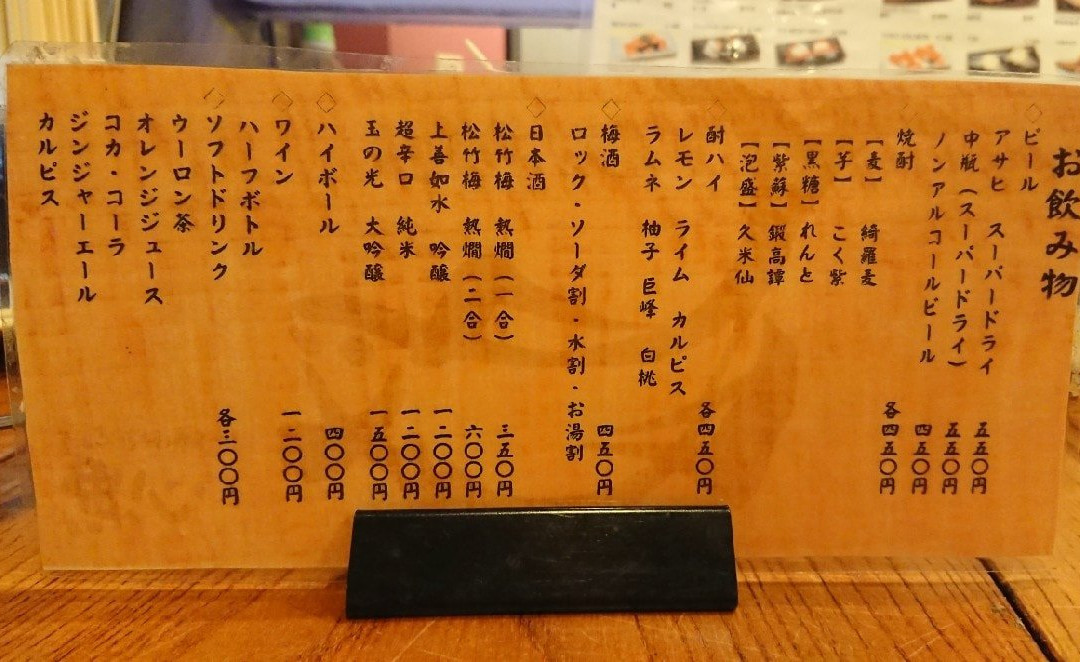 お飲み物
◇ビール
アサヒ スーパードライ 五五〇円
中瓶(スーパードライ) 五五〇円
ノンアルコールビール 四五〇円
◇焼酎 各四五〇円
【麦】 綺羅麦
【芋】 こく紫
【黒糖】 れんと
【紫蘇】 鍛高譚
【泡盛】 久米仙
◇酎ハイ 各四五〇円
レモン ライム カルピス
ラムネ 柚子 巨峰 白桃
◇梅酒 四五〇円
ロック・ソーダ割・水割・お湯割
◇日本酒
松竹梅 熱燗(一合) 三五〇円
松竹梅 熱燗(二合) 六〇〇円
上善如水 吟醸 一二〇〇円
超辛口 純米 一二〇〇円
玉の光 大吟醸 一五〇〇円
◇ハイボール 四〇〇円
◇ワイン
ハーフボトル 一二〇〇円
◇ソフトドリンク 各三〇〇円
ウーロン茶
オレンジジュース
コカ・コーラ
ジンジャーエール
カルピス